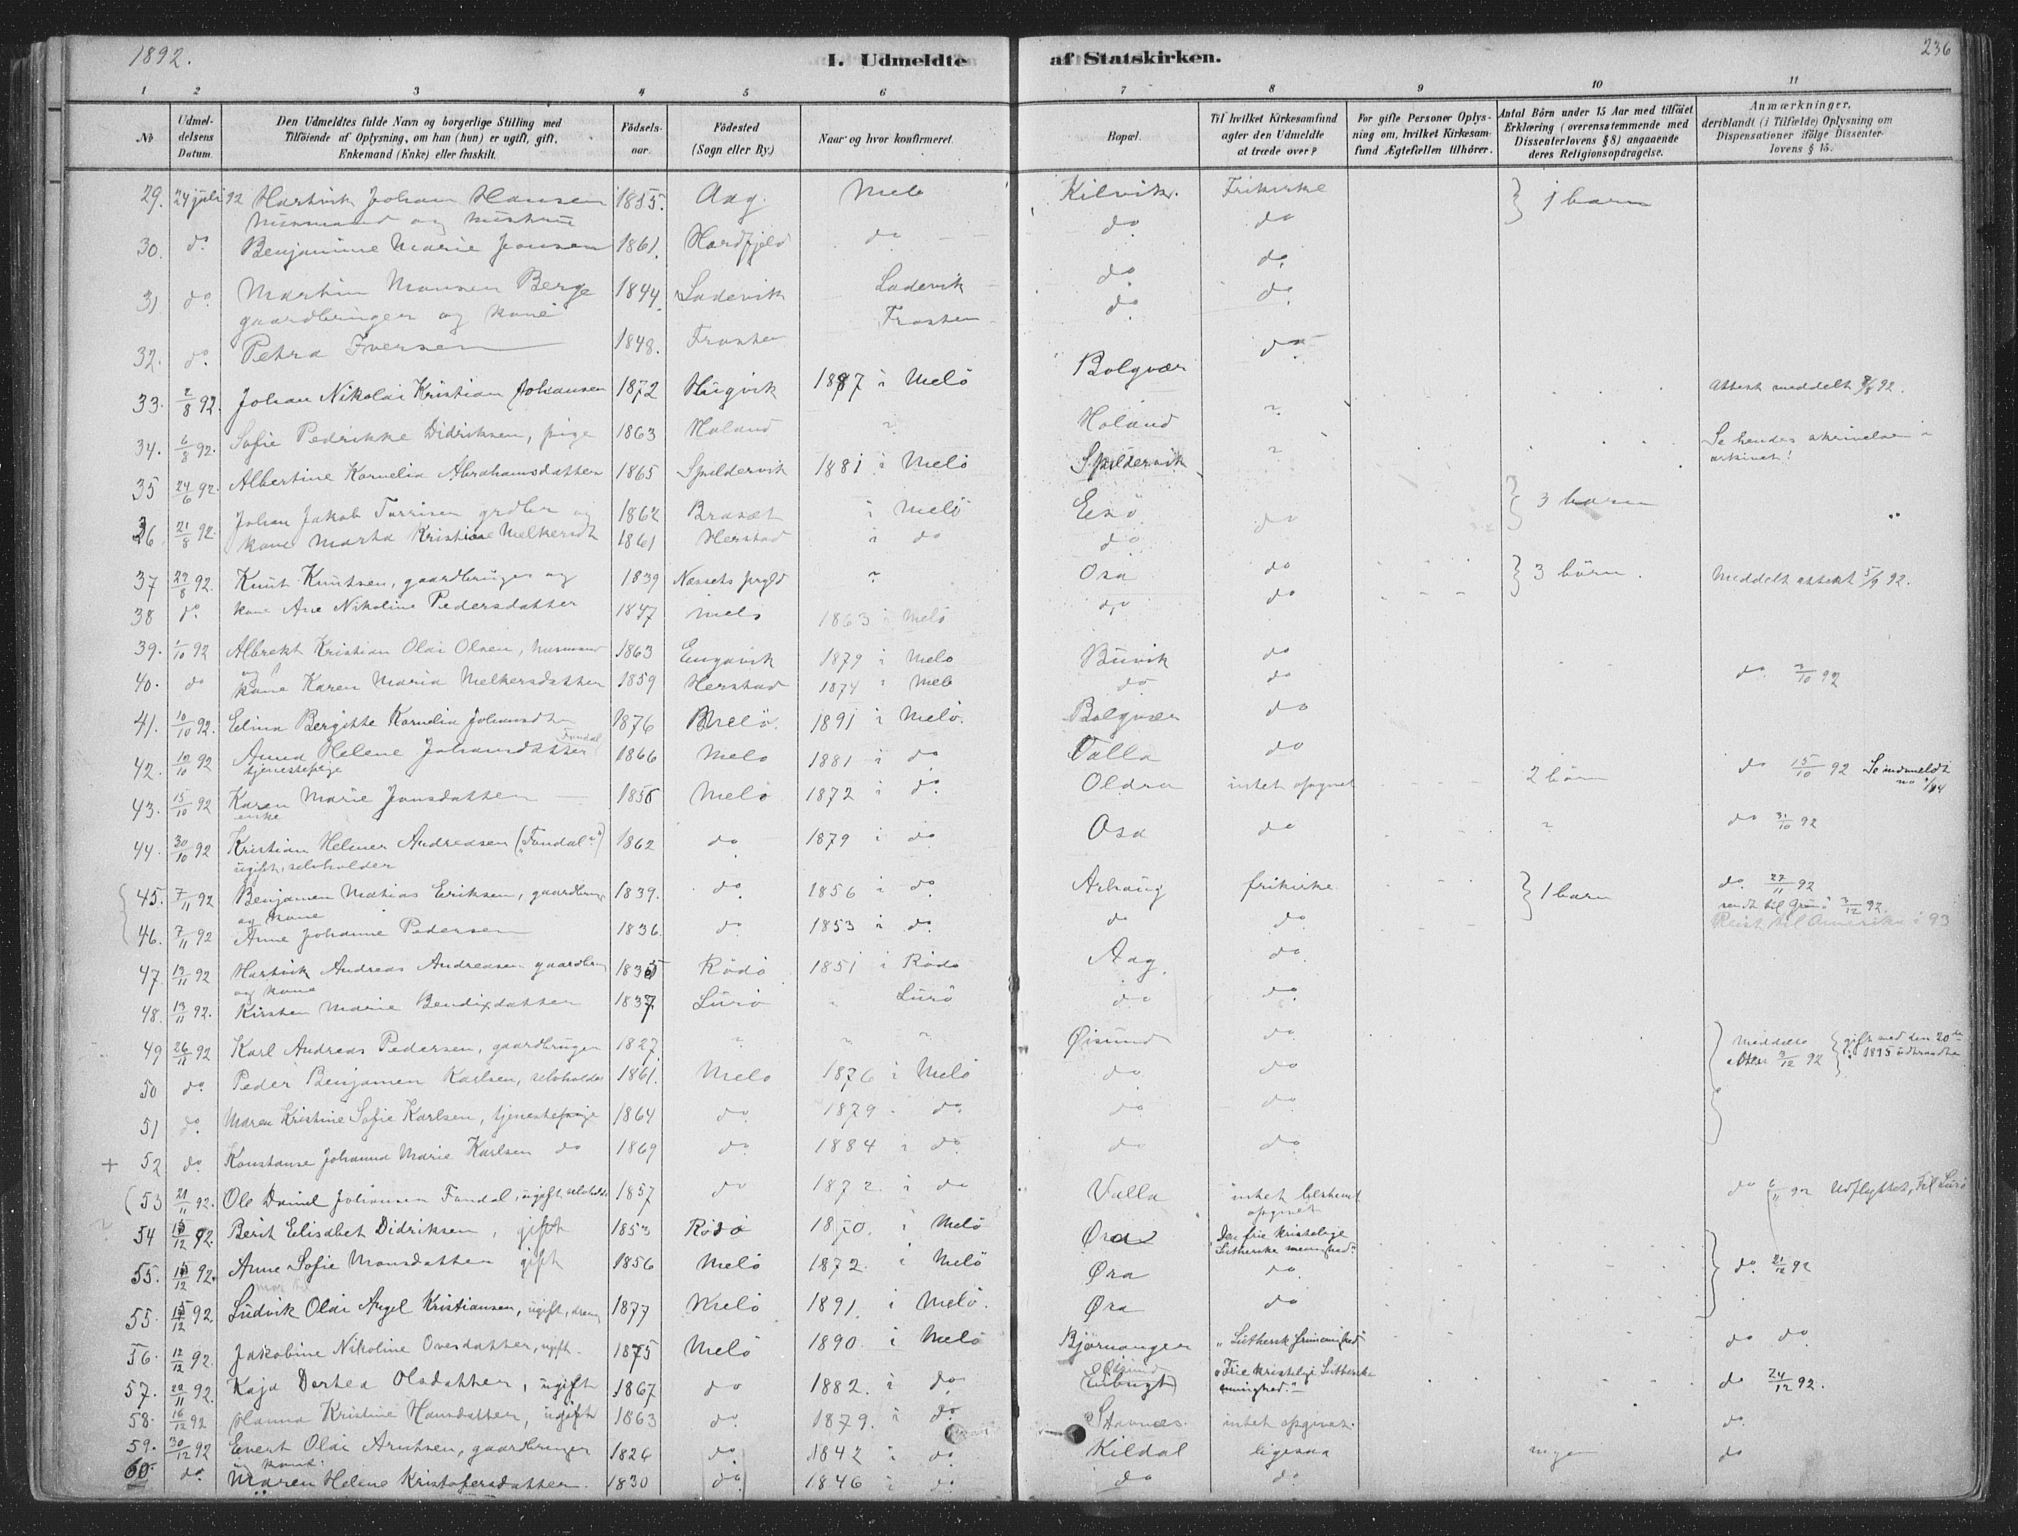 1892.
I. Udmeldte af Statskirken.
236
1 2 3 4 5 6 7 8 9 10 11
No
Udmeldelsens Datum.
Den Udmeldtes fulde Navn og borgerlige Stilling med Tilføiende af Oplysning, om han (hun) er ugift, gift, Enkemand (Enke) eller fraskilt.
Fødselsaar.
Fødested (Sogn eller By.)
Naar og hvor konfirmeret.
Bopæl.
Til hvilket Kirkesamfund agter den Udmeldte at træde over?
For gifte Personer Oplysning om, hvilket Kirkesamfund Ægtefællen tilhører.
Antal Børn under 15 Aar med tilføiet Erklæring (overensstemmende med Dissenterlovens § 8) angaaende deres Religionsopdragelse.
Anmærkninger, deriblandt (i Tilfælde) Oplysning om Dispensationer ifølge Dissenterlovens § 15.
29. 24 juli 92 Hartvik Johan Hansen 1855. Aag. Melö Kilvik. Frikirke } 1 barn
husmand og hustrue do do
30. do. Benjamine Marie Jonsen 1861. Hardfjeld do
31 do. Martin Monsen Berge 1844. Ladevik Ladevik do do
gaardbruger og kone do. do.
32. do. Petra Iversen 1848. Frosten Frosten do
33. 2/8 92. Johan Nikolai Kristian Johansen 1872 Hugvik 1887 i Melö Bolgvær attest meddelt 8/8 92.
34. 6/8 92. Sofie Pedrikke Didriksen, pige 1863 Holand " Holand " Se hendes skrivelse i arkivet!
35 24/6 92. Albertine Kornelia Abrahamsdatter 1865 Spildervik 1881 i Melö Spildervik "
36 21/8 92. Johan Jakob Torrisen grdbr og 1862 Brasæt i Melö Esö do } 3 barn
kone Marta Kristiane Melkersdt 1861 Herstad i do do
37 29/8 92. Knut Knutsen, gaardbruger og 1839 Næssets prgld " Osa do } 3 börn. Meddelt attest 5/9 92.
38 do. kone Ane Nikoline Pedersdatter 1847 Melö 1863 i Melö do do
39. 1/10 92 Albrekt Kristian Olai Olsen, husmand 1863 Engavik 1879 i Melö Buvik do
40. do og kone Karen Maria Melkersdatter 1859 Herstad 1874 i Melö do do do. 2/10 92
41. 10/10 92. Edina Bergitte Kornelia Johansdtr 1876 Melö. 1891 i Melö. Bolgvær do
42. 12/10 92 Anna Helene Johansdatter Fondal 1866 Melö 1881 i do Valla do
tjenestepige
43. 15/10 92 Karen Marie Jonsdatter 1856 Melö 1872 i do. Oldra intet opgivet 2 börn do 15/10 92 Se indmeldt no 1/94
enke
44. 30/10 92 Kristian Helmer Andreasen ("Fondal") 1862 do 1879 i do Osa do " do 31/10 92
ugift, selvholder
45. 7/11 92 Benjamen Matias Eriksen, gaardbrug 1839. do 1856 i do. Arhaug frikirke } 1 barn do. 27/11 92
og kone sendt til Grönö 3/12 92.
46. 7/11 92 Anne Johanne Pedersen 1836. do. 1853 i do. do do. Reist til Amerika i 93
47. 13/11 92 Hartvik Andreas Andreasen gaardbrug 1835 Rödö 1851 i Rödö Aag. do.
og kone
48. 13/11 92. Kirsten Marie Bendixdatter 1837 Lurö " Lurö do do.
49 26/11 92 Karl Andreas Pedersen, gaardbruger 1827. " " " Øisund do. Meddelt attest 3/12 92 gift med den 20de i 1895
50 do. Peder Benjamen Karlsen, selvholder 1861. Melö 1876 i Melö do do.
51 do. Maren Kristine Sofie Karlsen, tjenestepige 1864 do. 1879. do. do do.
+ 52 do. Konstanse Johanna Marie Karlsen do 1869 do. 1884 i do. do do.
(53 21/11 92. Ole Daniel Johansen Fondal, ugift selvholder 1857 do 1872. i do Valla intet bestemt opgivet do 6/11 92 Udflyttet, til Lurö
54 15/12 92. Berit Elisabet Didriksen, gift 1853 Rödö 1870. i Melö Øra Den frie kristelige Lutherske menighed.
55. 15/12 92. Anne Sofie Monsdatter gift 1856 Melö 1872. i Melö Øra do. do. 21/12 92
55. 15/12 92 Ludvik Olai Angel Kristiansen, ugift, dreng 1877 Melö 1891. i Melö. Øra do
56. 12/12 92. Jakobine Nikoline Ovesdatter, ugift. 1875 Melö 1890. i Melö Bjørnanger "Luthersk frimenighed" do do.
57. 22/11 92. Kaja Dortea Olsdatter, ugift 1867 do 1882. i do. Øisund "Frie kristelige Lutherske menighed." do 24/12 92.
58. 16/12 92 Hanna Kristine Hansdatter, ugift 1863 do. 1879. i do. Stavnæs. intet opgivet. do.
59. 30/12 92 Evert Olai Arntsen, gaardbruger 1826 do. 1842 i do. Kildal ligesaa ingen do
og kone.
60. do. Maren Helene Kristofersdatter. 1830 do. 1846 i do. do do.